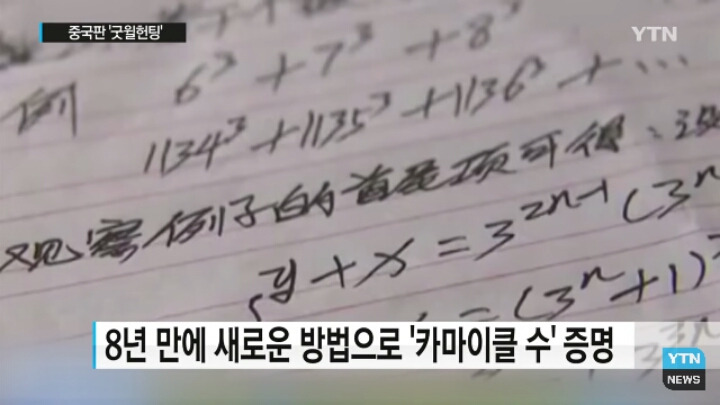 중국판 '굿윌헌팅'
YTN
例 6³ + 7³ + 8³
1134³ + 1135³ + 1136³ + ...
观察例子的首 项可得:
y + x = 3²ⁿ⁻¹ (3ⁿ
= (3ⁿ + 1)
8년 만에 새로운 방법으로 '카마이클 수' 증명
YTN
NEWS